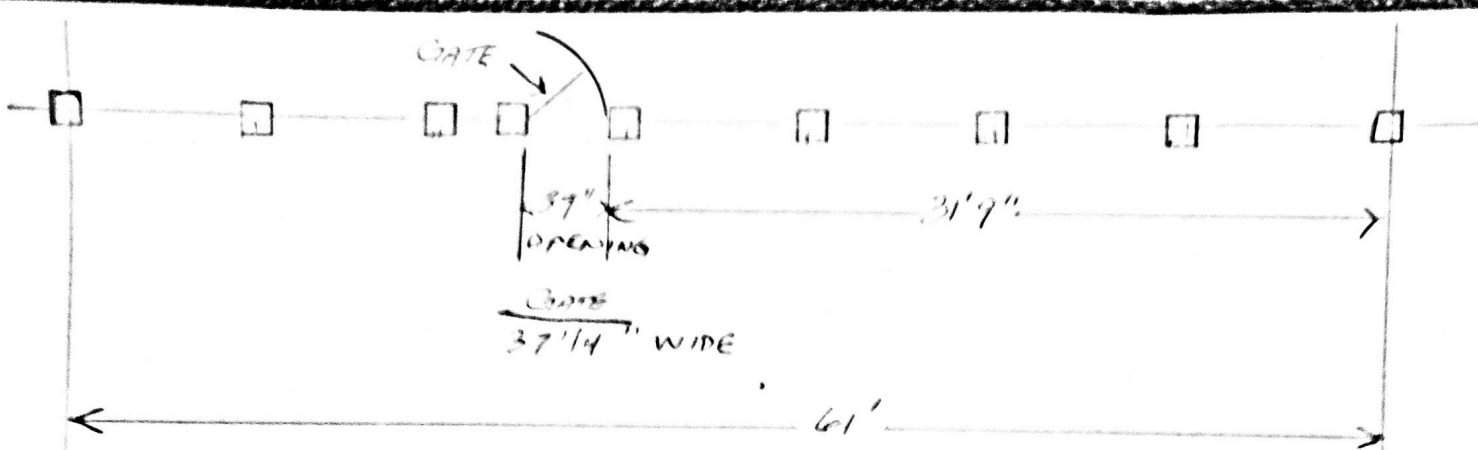 GATE
39"
OPENING
31'9"
GATE
37 1/4" WIDE
61'